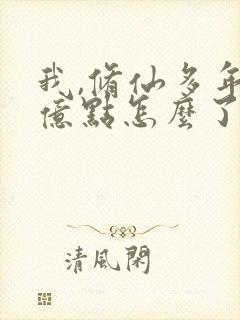 我,脩仙多年
億點怎麼了
清風閑